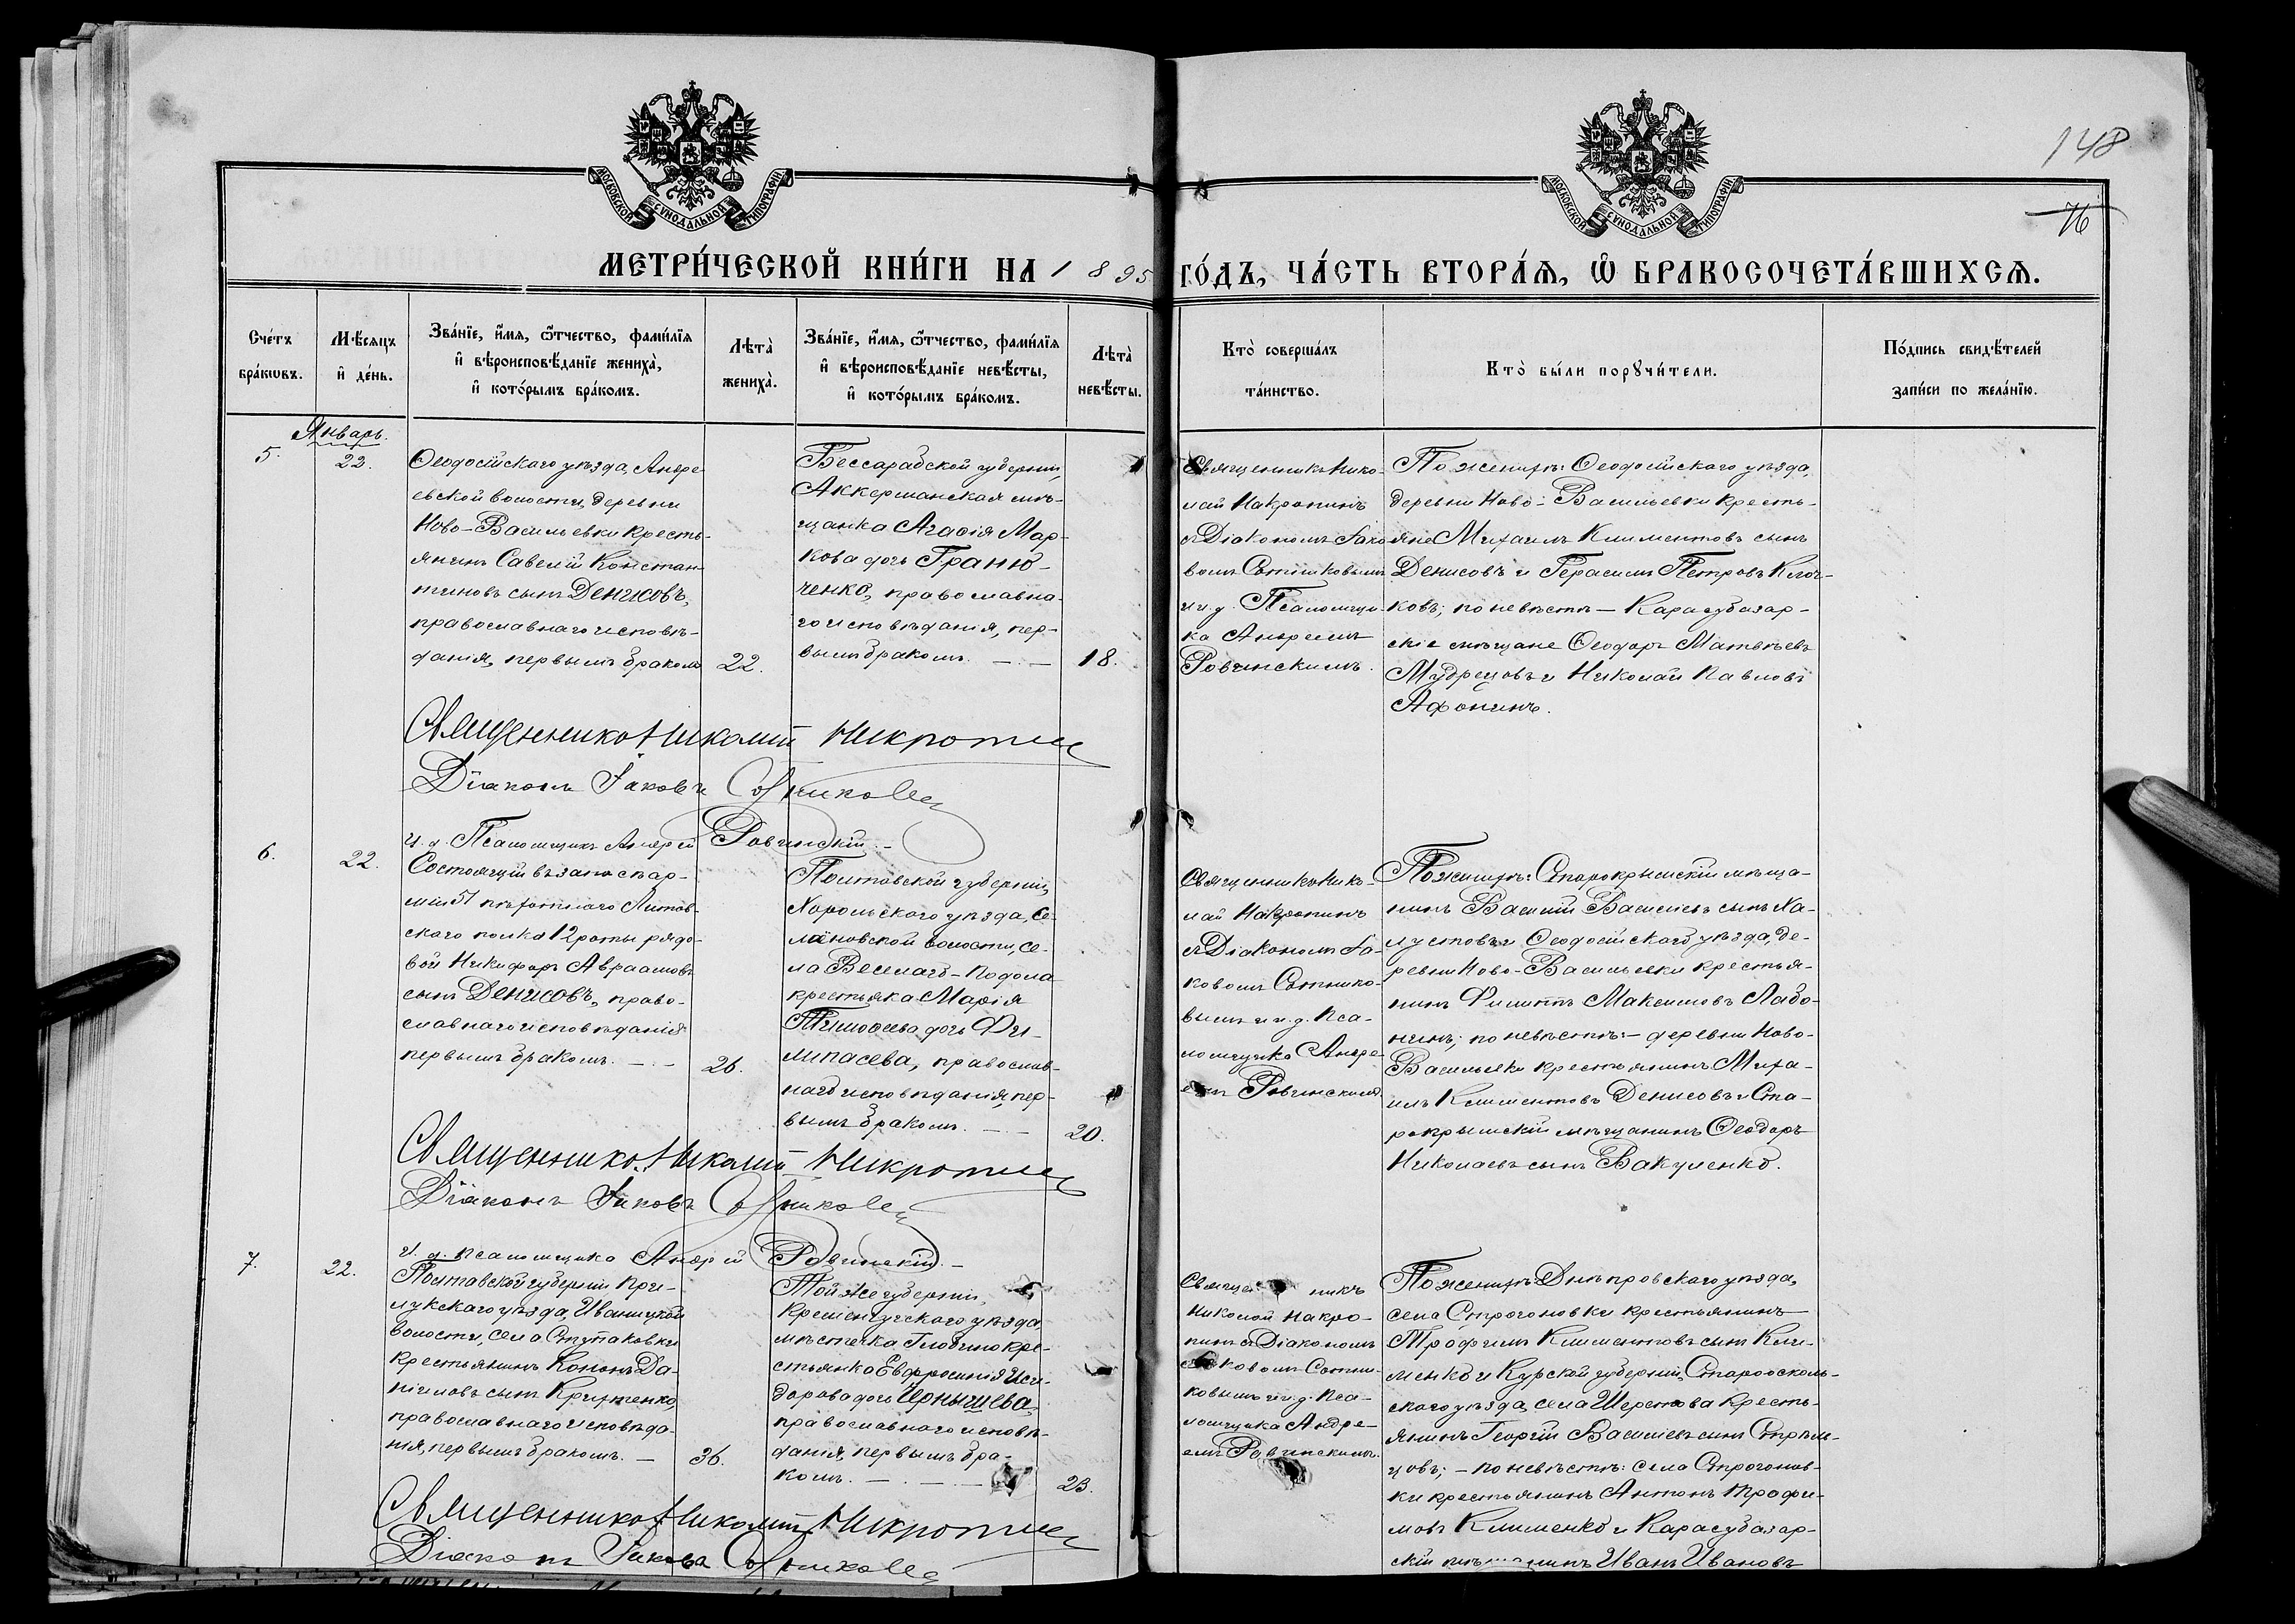 148
76
МОСКОВСКОЙ СѴНОДАЛЬНОЙ ТИПОГРАФІИ
МОСКОВСКОЙ СѴНОДАЛЬНОЙ ТИПОГРАФІИ
МЕТРИ́ЧЕСКОЙ КНИ́ГИ НА 1895 ГО́ДЪ, ЧА́СТЬ ВТОРА́Ѧ, Ѽ БРАКОСОЧЕТА́ВШИХСѦ.
Сче́тъ
бра́кѡвъ.
Мѣ́сѧцъ
и҆ де́нь.
Зва́нїе, и҆́мѧ, ѻ҆́тчество, фами́лїѧ
и҆ вѣроисповѣ́данїе жениха̀,
и҆ кото́рымъ бра́комъ.
Лѣта̀
жениха̀.
Зва́нїе, и҆́мѧ, ѻ҆́тчество, фами́лїѧ
и҆ вѣроисповѣ́данїе невѣ́сты,
и҆ кото́рымъ бра́комъ.
Лѣта̀
невѣ́сты.
Кто̀ соверша́лъ
та́инство.
Кто̀ бы́ли порꙋчи́тели.
По́дпись свидѣ́телей
за́писи по жела́нїю.
Январь.
5.
22.
Ѳеодосійскаго уѣзда, Андре-
евской волости, деревни
Ново-Васильевки кресть-
янинъ Савелій Констан-
тиновъ сынъ Денисовъ,
православнаго исповѣ-
данія, первымъ бракомъ
22.
Бессарабской губерніи,
Аккерманская мѣ-
щанка Агафія Мар-
кова дочь Граню-
ченко, православна-
го исповѣданія, пер-
вымъ бракомъ. — . —
18.
Священникъ Нико-
лай Накропинъ
съ Діакономъ Іако-
вомъ Сотниковымъ
и и. д. Псаломщи-
ка Андреемъ
Ровинскимъ.
По женихѣ: Ѳеодосійскаго уѣзда,
деревни Ново-Васильевки кресть-
яне Михаилъ Климентовъ сынъ
Денисовъ и Герасимъ Петровъ Клоч-
ковъ; по невѣстѣ — Карасубазар-
скіе мѣщане Ѳеодоръ Матвѣевъ
Мудрецовъ и Николай Павловъ
Афонинъ.
Священникъ Николай Накропин
Діаконъ Іаковъ Сотниковъ
и. д. Псаломщика Андрей Ровинскій. —
6.
22.
Состоящій въ запасѣ ар-
міи 51 пѣхотнаго Литов-
скаго полка 12 роты рядо-
вой Никифоръ Авраамовъ
сынъ Денисовъ, право-
славнаго исповѣданія
первымъ бракомъ. — . —
26.
Полтавской губерніи,
Хорольскаго уѣзда, Се-
мёновской волости, се-
ла Веселаго-Подола
крестьянка Марія
Тимоѳеева дочь Фи-
липасева, православ-
наго исповѣданія, пер-
вымъ бракомъ. — . —
20.
Священникъ Нико-
лай Накропинъ
съ Діакономъ Іа-
ковомъ Сотнико-
вымъ и и. д. Пса-
ломщика Андре-
емъ Ровинскимъ.
По женихѣ: Старокрымскій мѣща-
нинъ Василій Васильевъ сынъ Ха-
лустовъ и Ѳеодосійскаго уѣзда, де-
ревни Ново-Васильевки крестья-
нинъ Филиппъ Максимовъ Лабо-
нинъ; по невѣстѣ: — деревни Ново-
Васильевки крестьянинъ Миха-
илъ Климентовъ Денисовъ и Ста-
рокрымскій мѣщанинъ Ѳеодоръ
Николаевъ сынъ Вакуленко.
Священникъ Николай Накропин
Діаконъ Іаковъ Сотниковъ
и. д. псаломщика Андрей Ровинскій. —
7.
22.
Полтавской губерніи При-
лукскаго уѣзда, Иваницкой
волости, села Ступаковки
крестьянинъ Кононъ Да-
ніиловъ сынъ Крихтенко,
православнаго исповѣда-
нія, первымъ бракомъ. —
36.
Той же губерніи,
Кременчугскаго уѣзда,
мѣстечка Глобино кре-
стьянка Евфросинія Иси-
дорова дочь Чернышева,
православнаго исповѣ-
данія, первымъ бра-
комъ. — . — . —
23.
Священникъ
Николай Накро-
пинъ съ Діакономъ
Іаковомъ Сотни-
ковымъ и и. д. Пса-
ломщика Андре-
емъ Ровинскимъ.
По женихѣ Днѣпровскаго уѣзда,
села Строгоновки крестьянинъ
Трофимъ Климентовъ сынъ Кли-
менко и Курской губерніи, Старооскол-
скаго уѣзда, села Шерстова кресть-
янинъ Георгій Васильевъ сынъ Стрѣль-
цовъ; — по невѣстѣ: села Строгонов-
ки крестьянинъ Антонъ Трофи-
мовъ Клименко и Карасубазар-
скій мѣщанинъ Иванъ Ивановъ
Священникъ Николай Накропин
Діаконъ Іаковъ Сотниковъ